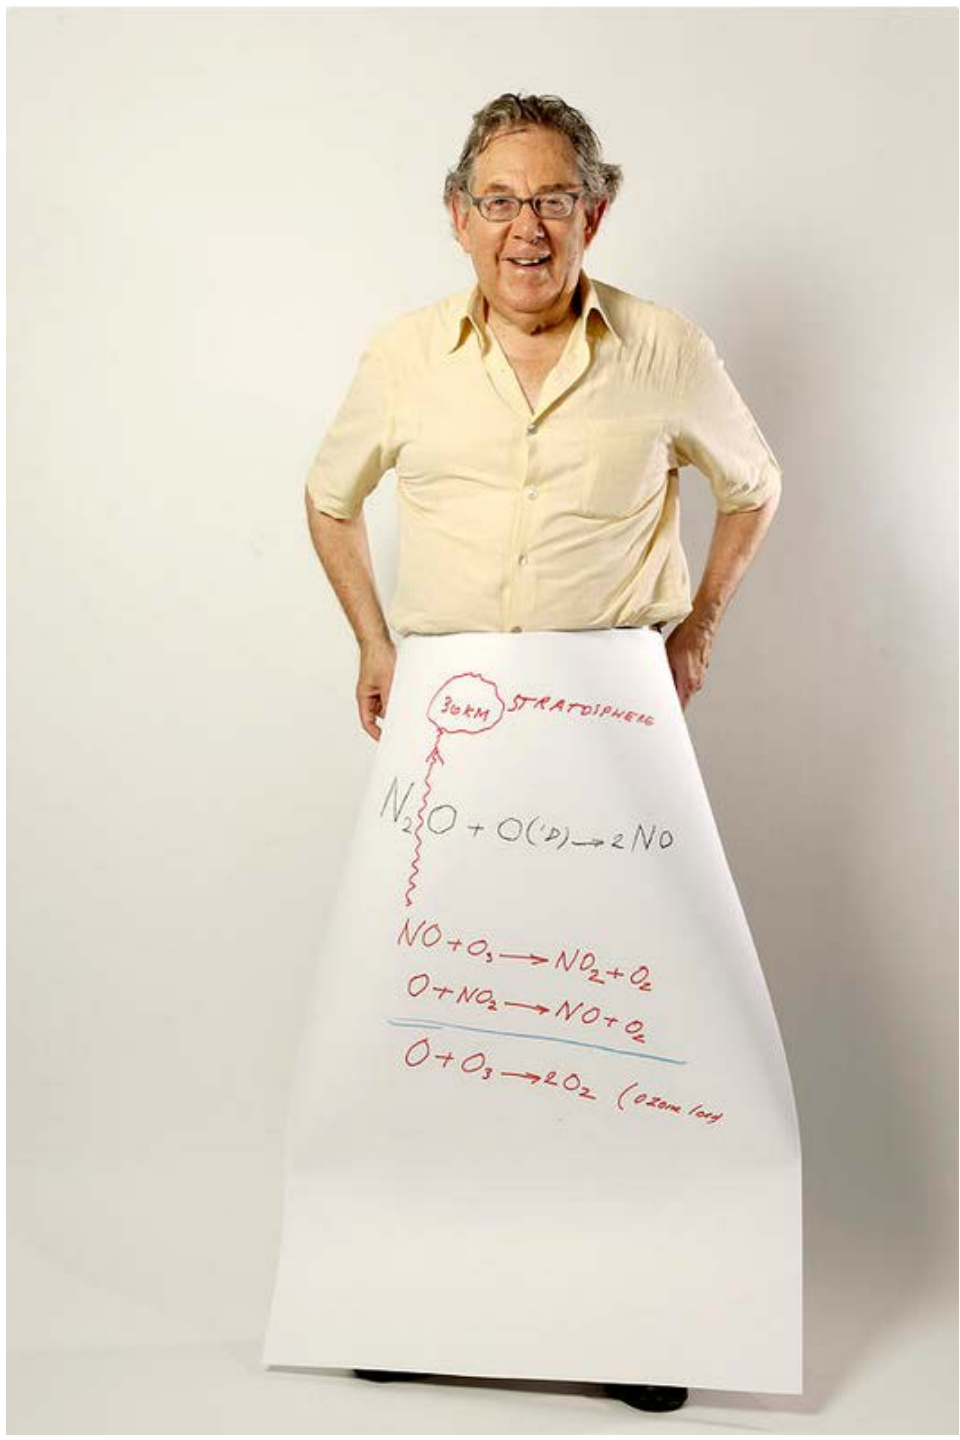 30KM STRATOSPHERE
N₂O + O('D) → 2 NO
NO + O₃ → NO₂ + O₂
O + NO₂ → NO + O₂
O + O₃ → 2O₂ (ozone loss)